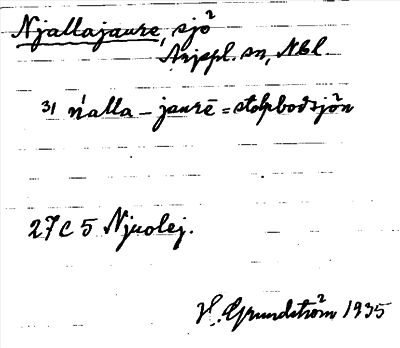 Njallajaure, sjö
Arjepl. sn, Nbl.
31 ńalla – jaurē = stolpbodsjön
27C 5 Njuolej.
H. Grundström 1935